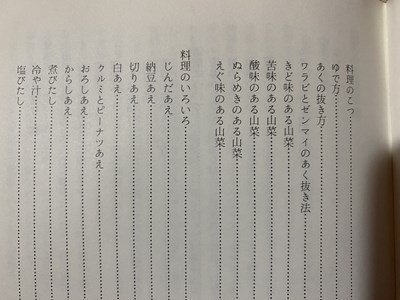 料理のこつ
ゆで方
あくの抜き方
ワラビとゼンマイのあく抜き法
きど味のある山菜
苦味のある山菜
酸味のある山菜
ぬらめきのある山菜
えぐ味のある山菜
料理のいろいろ
じんだあえ
納豆あえ
切りあえ
白あえ
クルミとピーナツあえ
おろしあえ
からしあえ
煮びたし
冷や汁
塩びたし